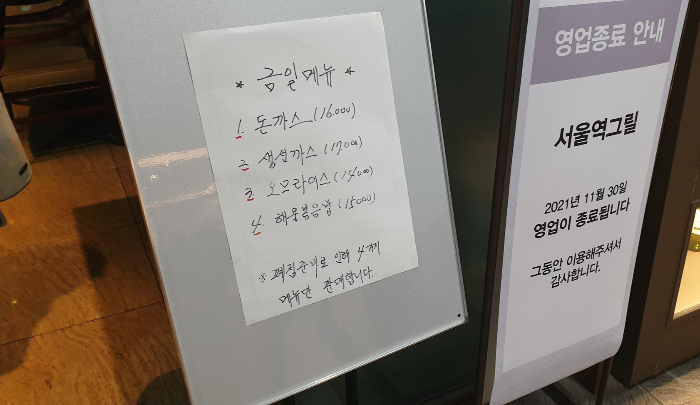 * 금일메뉴 *
1. 돈까스 (16.000)
2. 생선까스 (17.000)
3. 오므라이스 (14.000)
4. 해물볶음밥 (15.000)
※ 폐점준비로 인해 4가지
메뉴만 판매합니다.
영업종료 안내
서울역그릴
2021년 11월 30일
영업이 종료됩니다
그동안 이용해주셔서
감사합니다.